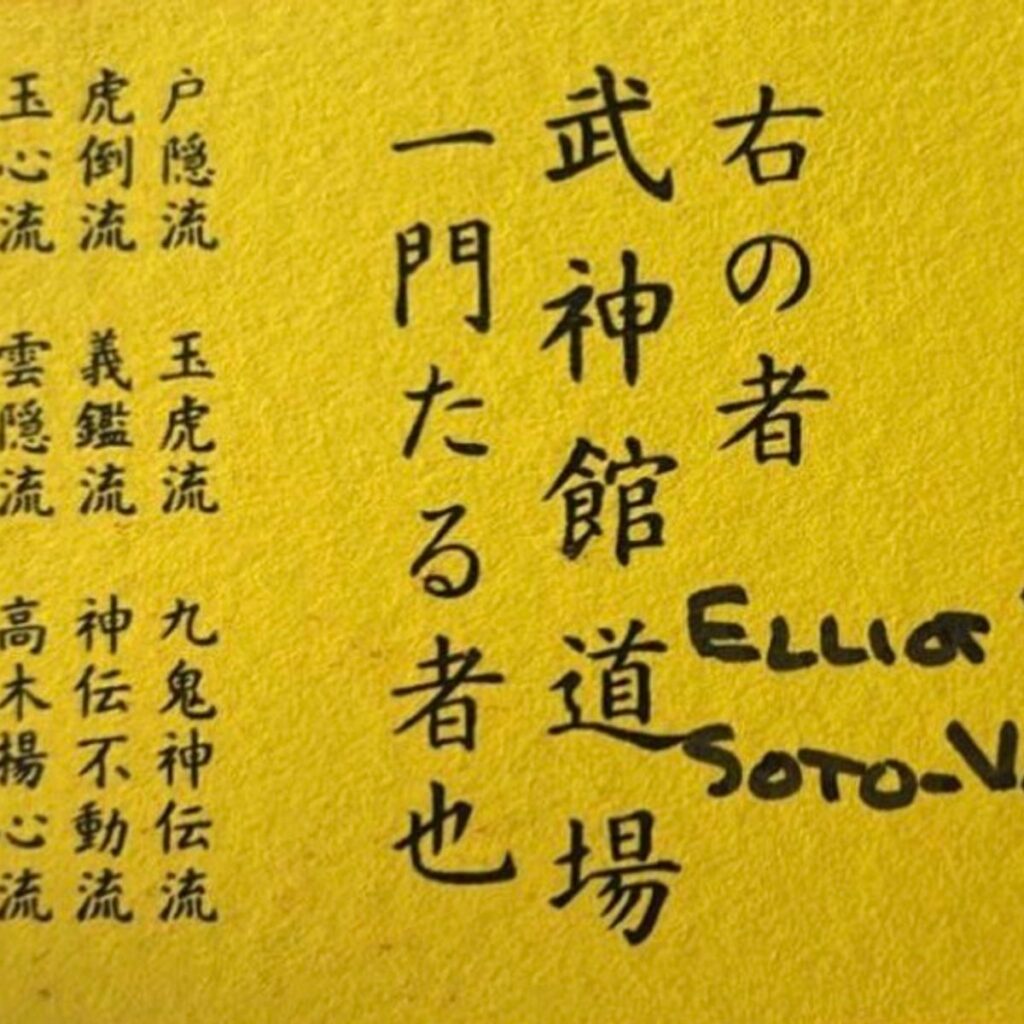 右の者
武神館道場
一門たる者也
戸隠流 玉虎流 九鬼神伝流
虎倒流 義鑑流 神伝不動流
玉心流 雲隠流 高木揚心流
SOTO-